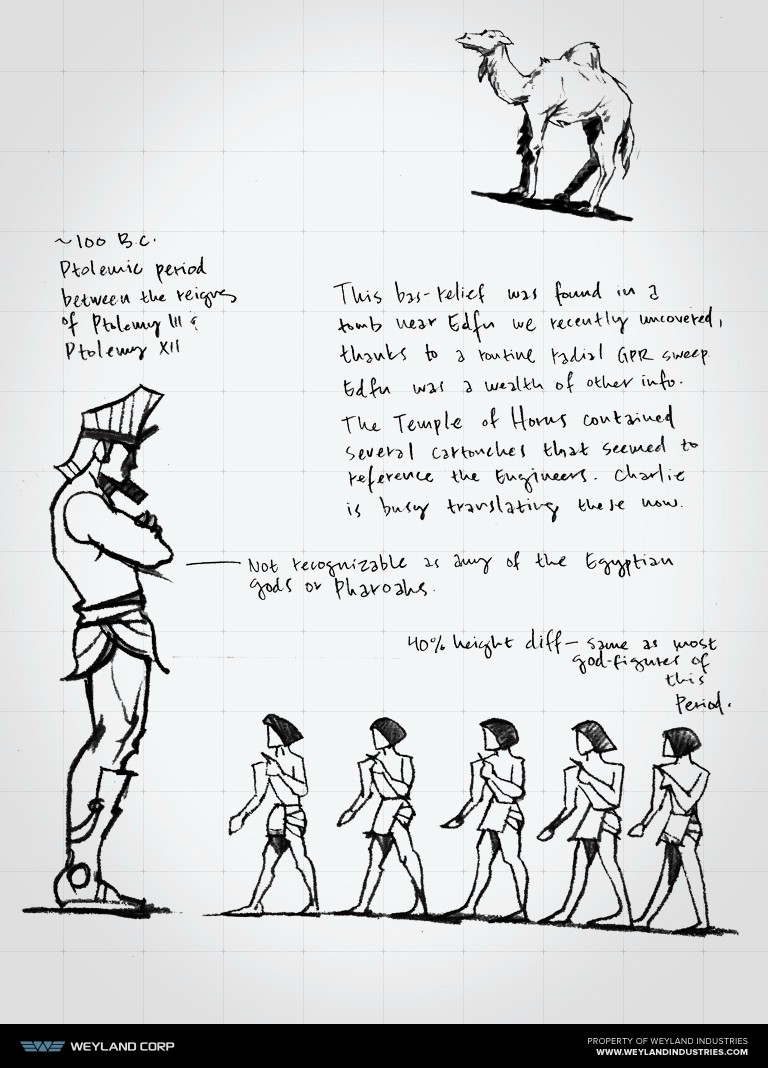 ~100 B.C.
Ptolemic period
between the reigns
of Ptolemy III &
Ptolemy XII
This bas-relief was found in a
tomb near Edfu we recently uncovered,
thanks to a routine radial GPR sweep.
Edfu was a wealth of other info.
The Temple of Horus contained
several cartouches that seemed to
reference the Engineers. Charlie
is busy translating these now.
Not recognizable as any of the Egyptian
gods or Pharoahs.
40% height diff— same as most
god-figures of
this
Period.
WEYLAND CORP
PROPERTY OF WEYLAND INDUSTRIES
WWW.WEYLANDINDUSTRIES.COM